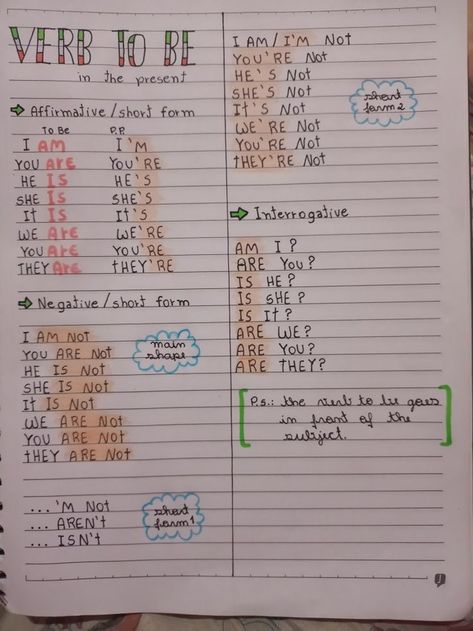 VERB TO BE
in the present
Affirmative/short form
To Be P.P.
I AM I'M
YOU ARE YOU'RE
HE IS HE'S
SHE IS SHE'S
IT IS IT'S
WE ARE WE'RE
YOU ARE YOU'RE
THEY ARE THEY'RE
Negative/short form
I AM NOT
YOU ARE NOT
HE IS NOT
SHE IS NOT
IT IS NOT
WE ARE NOT
YOU ARE NOT
THEY ARE NOT
main
shape
... 'M NOT
... AREN'T
... ISN'T
short
form 1
I AM/I'M NOT
YOU'RE NOT
HE'S NOT
SHE'S NOT
IT'S NOT
WE'RE NOT
YOU'RE NOT
THEY'RE NOT
short
form 2
Interrogative
AM I?
ARE YOU?
IS HE?
IS SHE?
IS IT?
ARE WE?
ARE YOU?
ARE THEY?
P.s.: the verb to be goes
in front of the
subject.